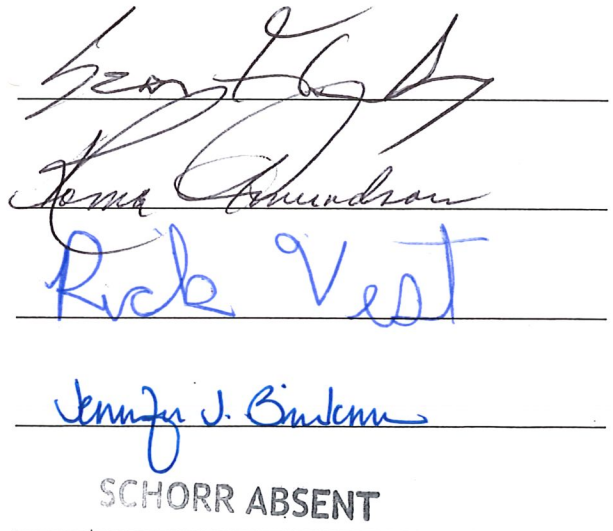 Roma Amundson
Rick Vest
Jennifer J. Brinkman
SCHORR ABSENT